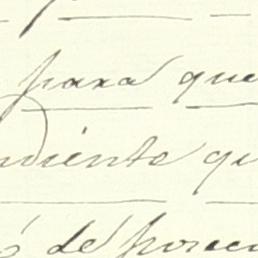 para que
ndiente qu
ó de